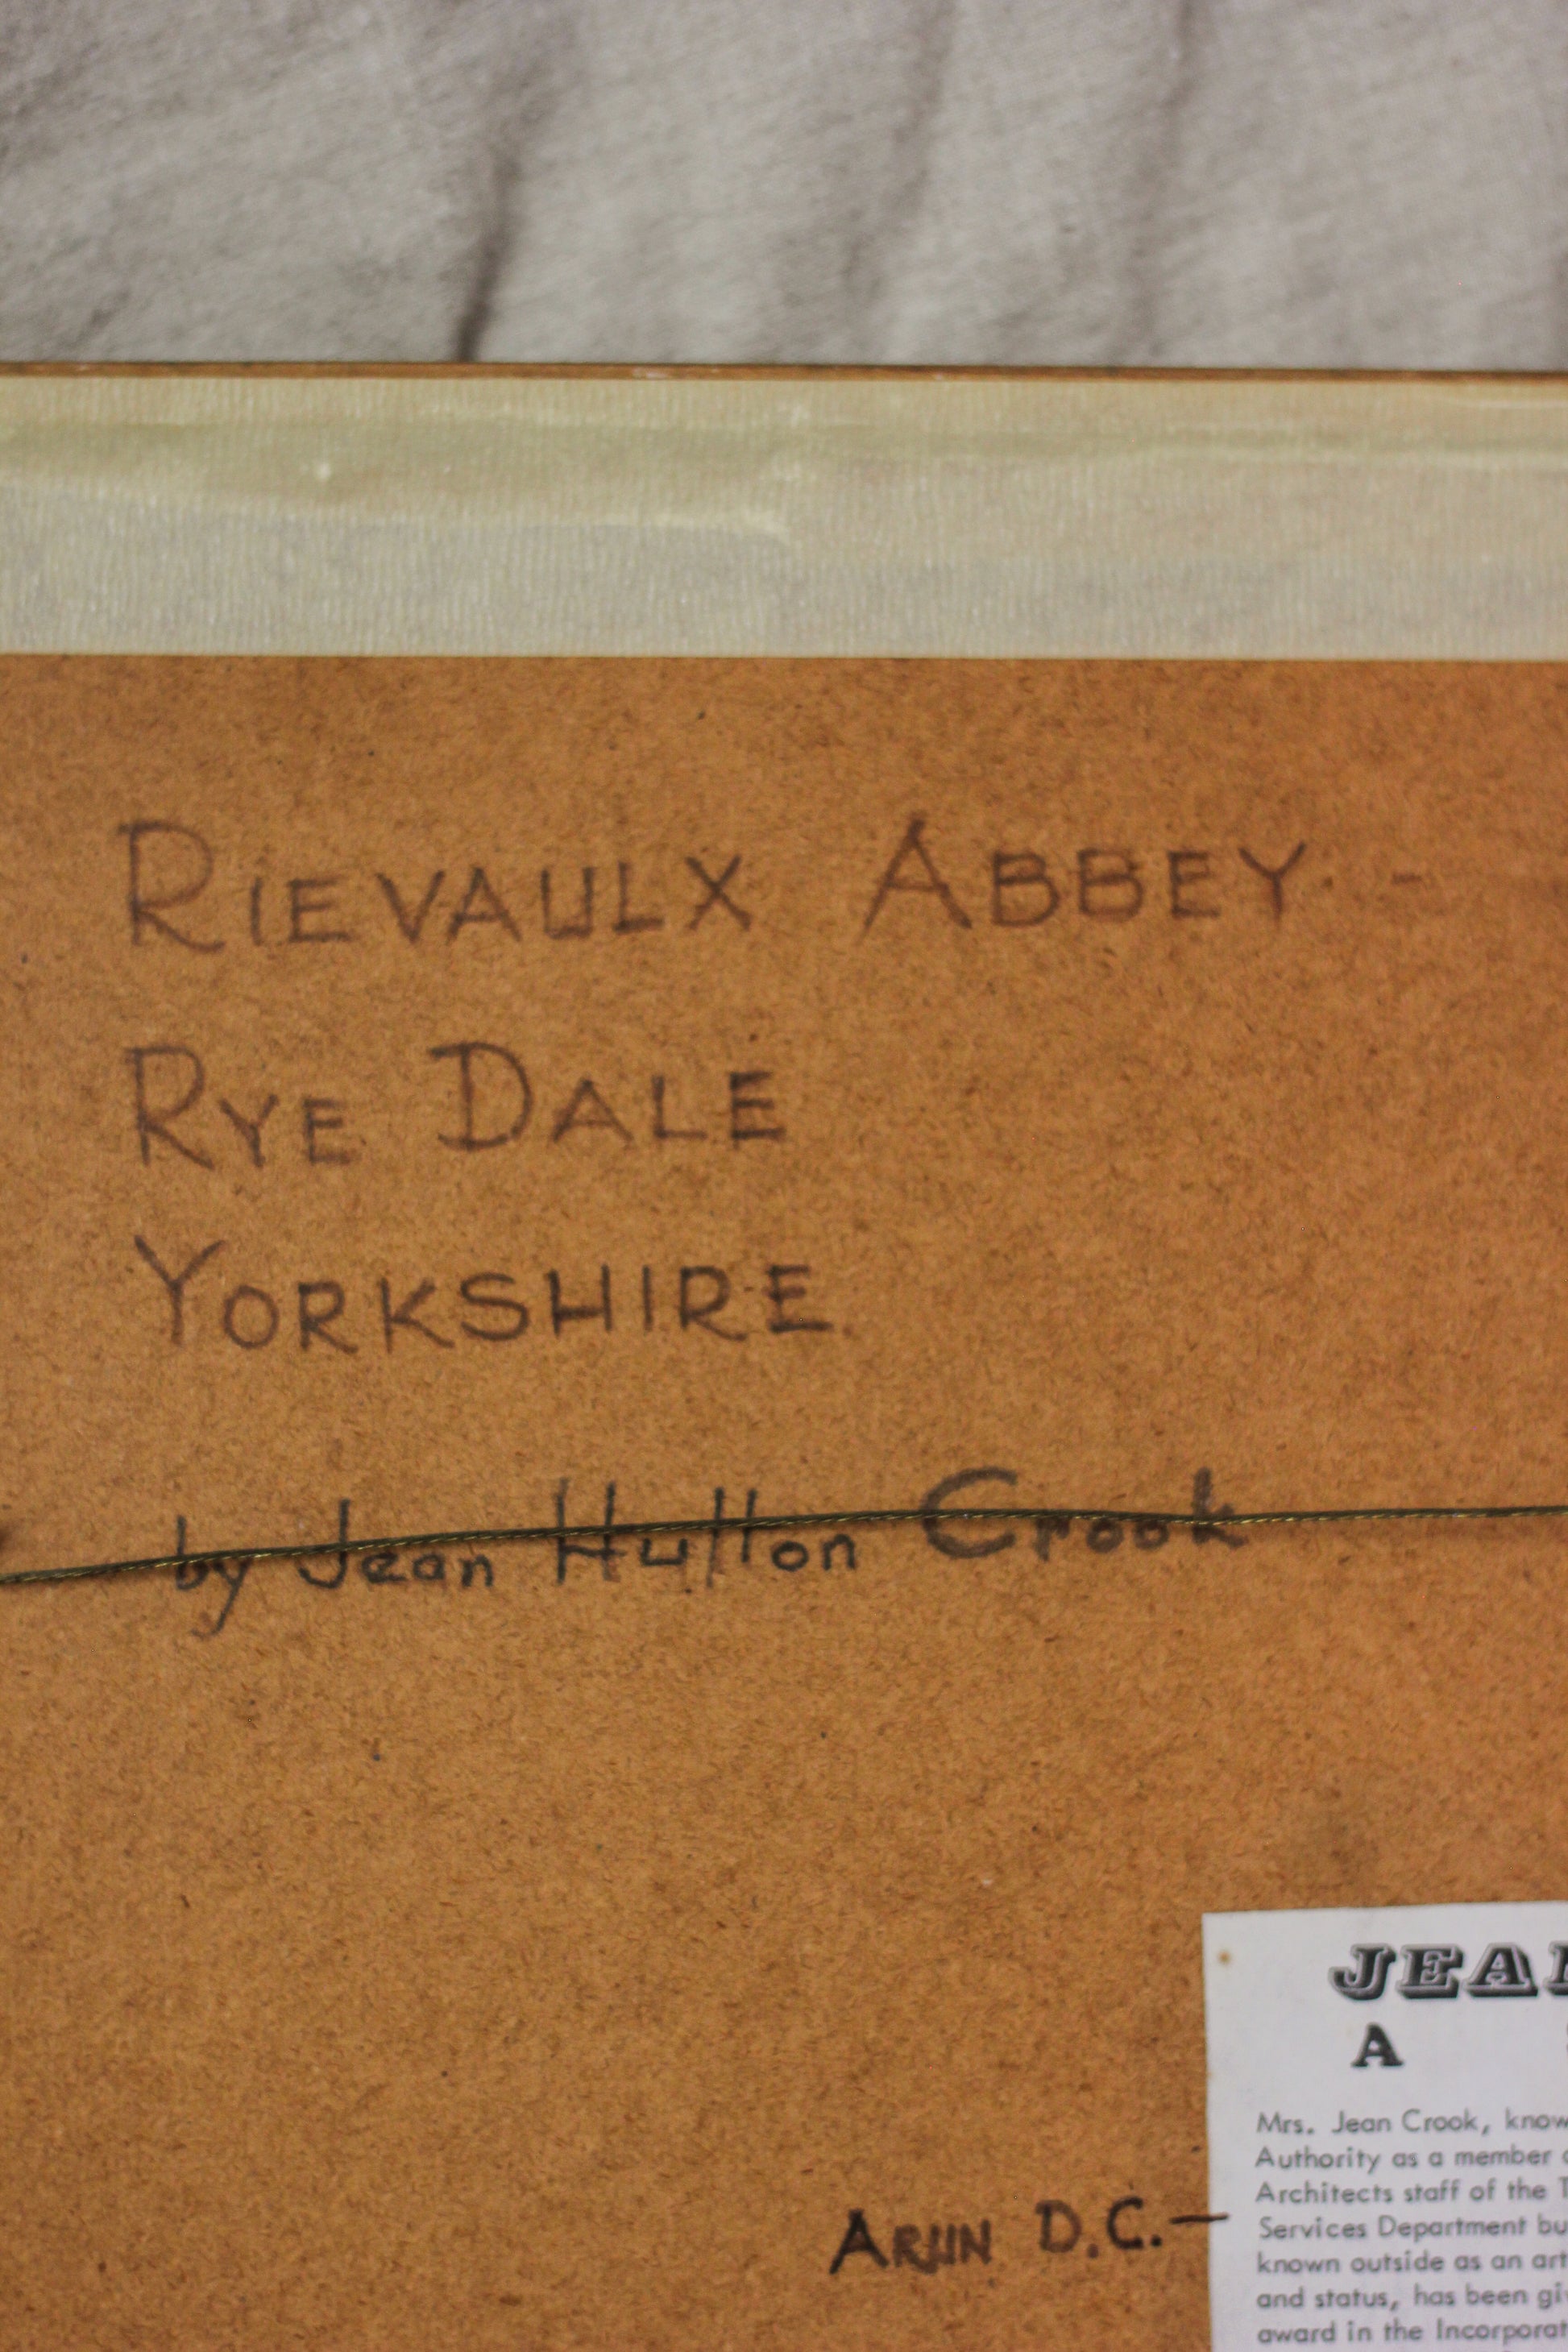 RIEVAULX ABBEY. -
RYE DALE
YORKSHIRE
by Jean Hutton Crook
JEAN
A
Mrs. Jean Crook, know
Authority as a member
Architects staff of the T
Services Department bu
ARUN D.C. —
known outside as an art
and status, has been giv
award in the Incorporat